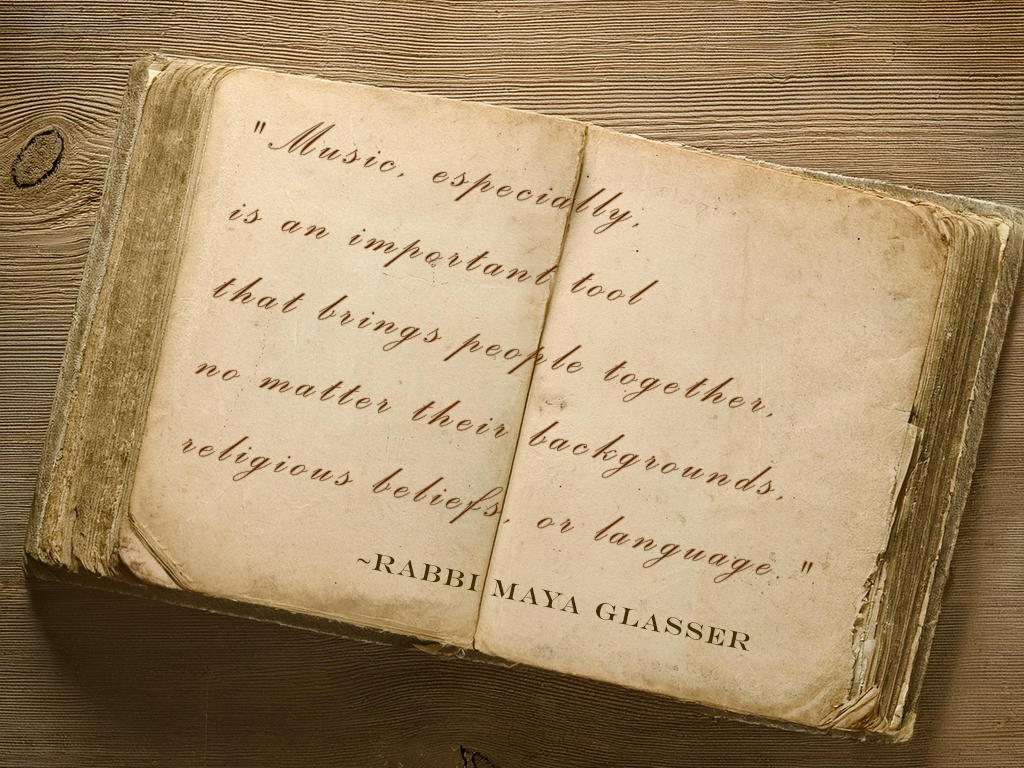 "Music, especially,
is an important tool
that brings people together,
no matter their backgrounds,
religious beliefs, or language."
~RABBI MAYA GLASSER